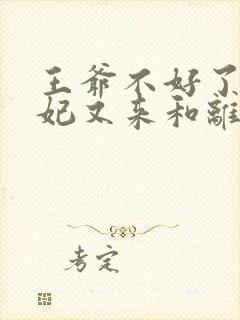 王爷不好了
妃又来和離
考定